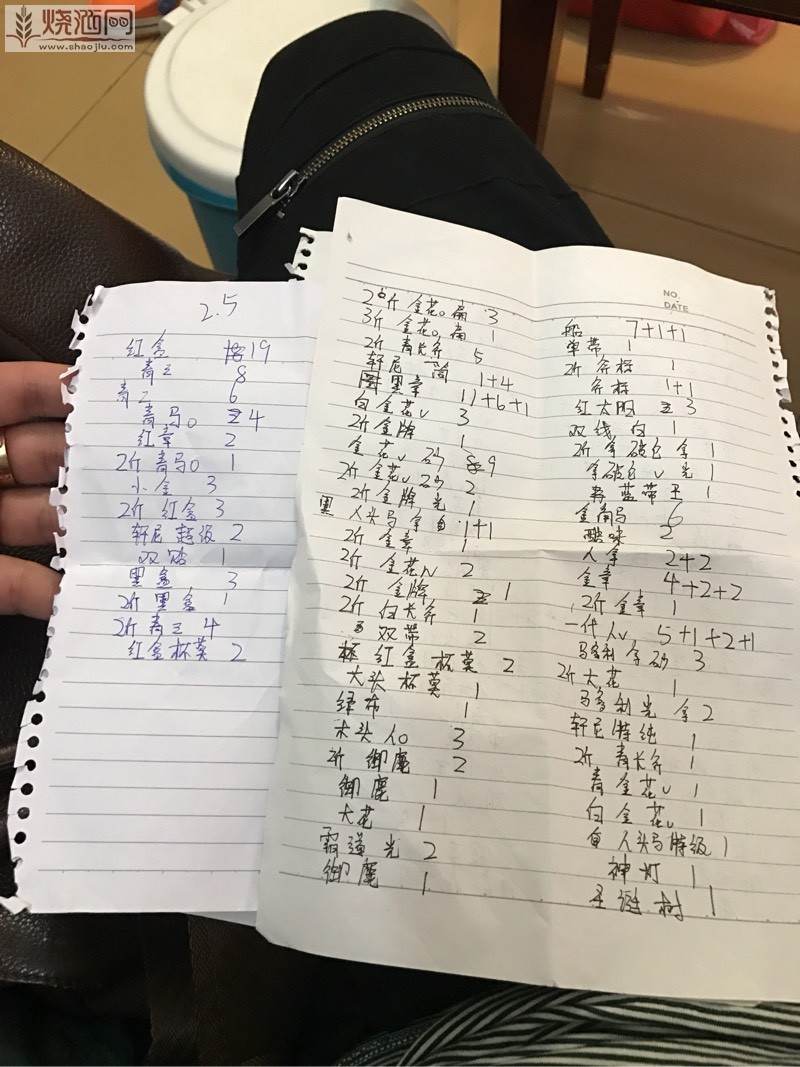 烧酒网
www.shaojiu.com
2.5
红盒 19
青三 8
青三 6
青马o 4
红章 2
2斤青马o 1
小金 3
2斤红盒 3
轩尼超级 2
双咕 1
黑盒 3
2斤黑盒 1
2斤青三 4
红盒杯莫 2
2斤金花o扁 3
3斤金花o扁 1
2斤青长斧 5
轩尼 1+4
黑章 11+6+1
白金花v 3
2斤金牌 1
金花v 砂 9
2斤金花v砂 2
2斤金牌光 1
黑人头马拿 1+1
2斤金章 1
2斤金花N 2
2斤金牌 1
2斤白长斧 1
双带 2
红盒杯莫 2
大头杯莫 1
绿布 1
木头人o 3
2斤御鹿 2
御鹿 1
大花 1
霸道光 2
御鹿 1
NO.
DATE
船 7+1+1
单带 1
2斤斧标 1
斧标 1+1
红太阳 3
双线白 1
2斤拿破仑拿 1
拿破仑v光 1
蓝带王 1
金南马 6
2
人拿 2+2
金章 4+2+2
2斤金章 1
一代人v 5+1+2+1
马爹利拿砂 3
2斤大花 1
马爹利光拿 2
轩尼特纯 1
2斤青长斧 1
青金花v 1
白金花v 1
人头马特级 1
神灯 1
圣诞树 1